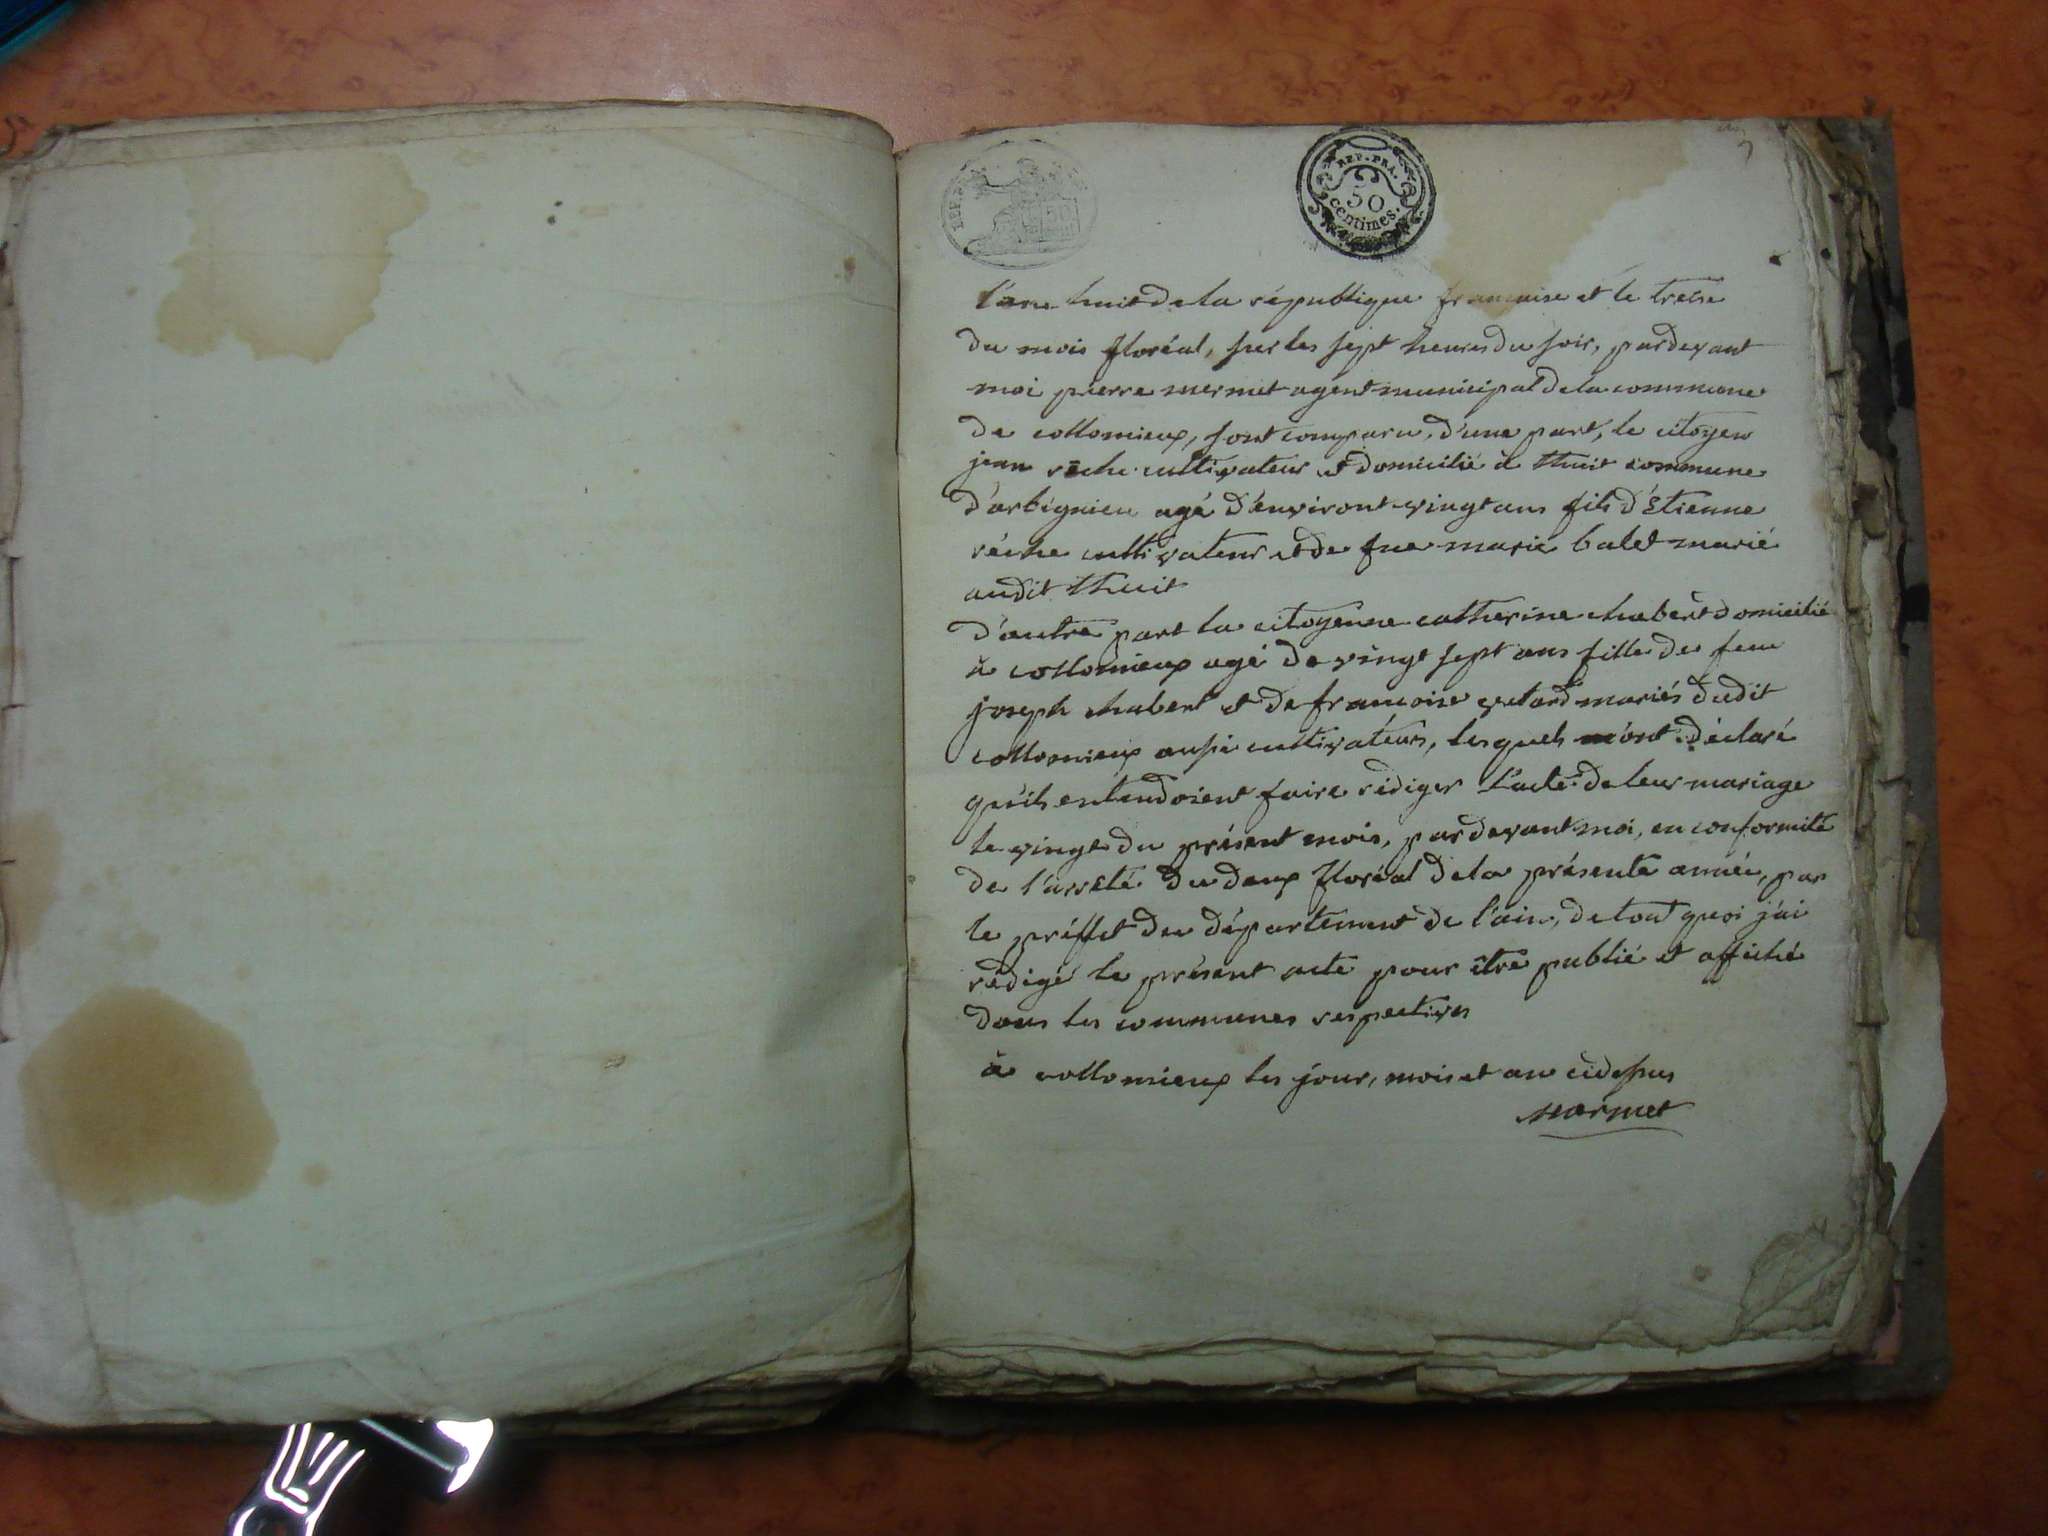 REP.
50
REP. FRA.
50
centimes.
7
l'an huit de la république francaise et le treise
du mois floréal, sur les sept heures du soir, pardevant
moi pierre mermet agent municipal de la commune
de collomieux, sont comparu, d'une part, le citoyen
jean rêche cultivateur et domicilié à thuit commune
d'arbignieu agé d'environt vingt ans fils d'Etienne
réche cultivateur et de feue marie balet marié
audit thuit
d'autre part la citoyenne catherine chabert domicilié
à collomieux agé de vingt sept ans fille de feu
joseph chabert et de francoise vetard mariés dudit
collomieux aussi cultivateurs, lesquels m'ont déclaré
qu'ils entendoient faire rédiger l'acte de leur mariage
le vingt du présent mois, pardevant moi, en conformité
de l'arrêté du deux floréal de la présente année, par
le préffet du département de l'ain, de tout quoi j'ai
rédigé le présent acte pour être publié et affiché
dans les communes respectives
à collomieux les jour, mois et an cidessus
mermet